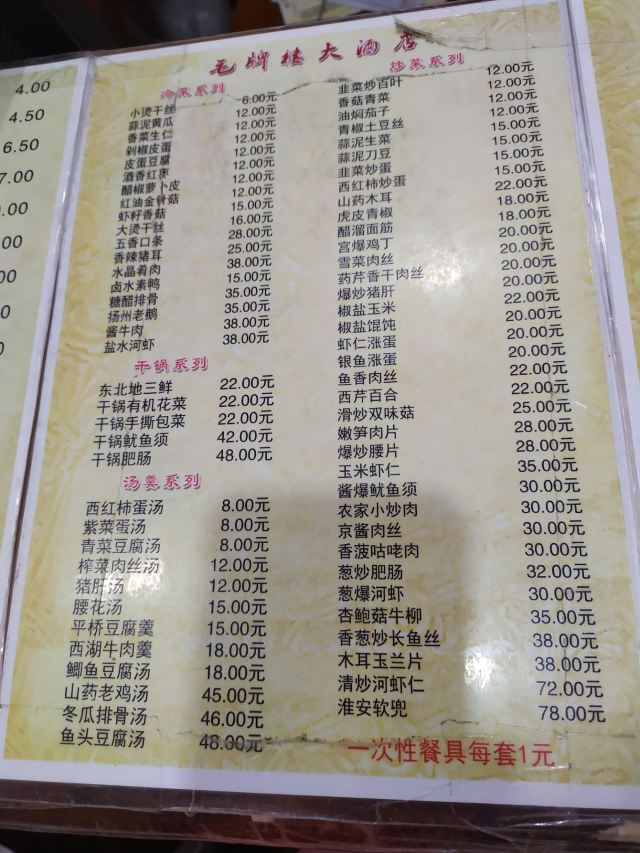 4.00
4.50
6.50
7.00
毛牌楼大酒店
冷菜系列
小烫干丝 6.00元
蒜泥黄瓜 12.00元
香菜生仁 12.00元
剁椒皮蛋 12.00元
皮蛋豆腐 12.00元
酒香红枣 12.00元
醋椒萝卜皮 12.00元
红油金针菇 12.00元
虾籽香菇 15.00元
大烫干丝 16.00元
五香口条 28.00元
香辣猪耳 25.00元
水晶肴肉 38.00元
卤水素鸭 15.00元
糖醋排骨 35.00元
扬州老鹅 35.00元
酱牛肉 38.00元
盐水河虾 38.00元
干锅系列
东北地三鲜 22.00元
干锅有机花菜 22.00元
干锅手撕包菜 22.00元
干锅鱿鱼须 42.00元
干锅肥肠 48.00元
汤羹系列
西红柿蛋汤 8.00元
紫菜蛋汤 8.00元
青菜豆腐汤 8.00元
榨菜肉丝汤 12.00元
猪肝汤 12.00元
腰花汤 15.00元
平桥豆腐羹 15.00元
西湖牛肉羹 18.00元
鲫鱼豆腐汤 18.00元
山药老鸡汤 45.00元
冬瓜排骨汤 46.00元
鱼头豆腐汤 48.00元
炒菜系列
韭菜炒百叶 12.00元
香菇青菜 12.00元
油焖茄子 12.00元
青椒土豆丝 12.00元
蒜泥生菜 15.00元
蒜泥刀豆 15.00元
韭菜炒蛋 15.00元
西红柿炒蛋 15.00元
山药木耳 22.00元
虎皮青椒 18.00元
醋溜面筋 18.00元
宫爆鸡丁 20.00元
雪菜肉丝 20.00元
药芹香干肉丝 20.00元
爆炒猪肝 20.00元
椒盐玉米 22.00元
椒盐馄饨 20.00元
虾仁涨蛋 20.00元
银鱼涨蛋 20.00元
鱼香肉丝 22.00元
西芹百合 22.00元
滑炒双味菇 25.00元
嫩笋肉片 28.00元
爆炒腰片 28.00元
玉米虾仁 35.00元
酱爆鱿鱼须 30.00元
农家小炒肉 30.00元
京酱肉丝 30.00元
香菠咕咾肉 30.00元
葱炒肥肠 32.00元
葱爆河虾 30.00元
杏鲍菇牛柳 35.00元
香葱炒长鱼丝 38.00元
木耳玉兰片 38.00元
清炒河虾仁 72.00元
淮安软兜 78.00元
一次性餐具每套1元